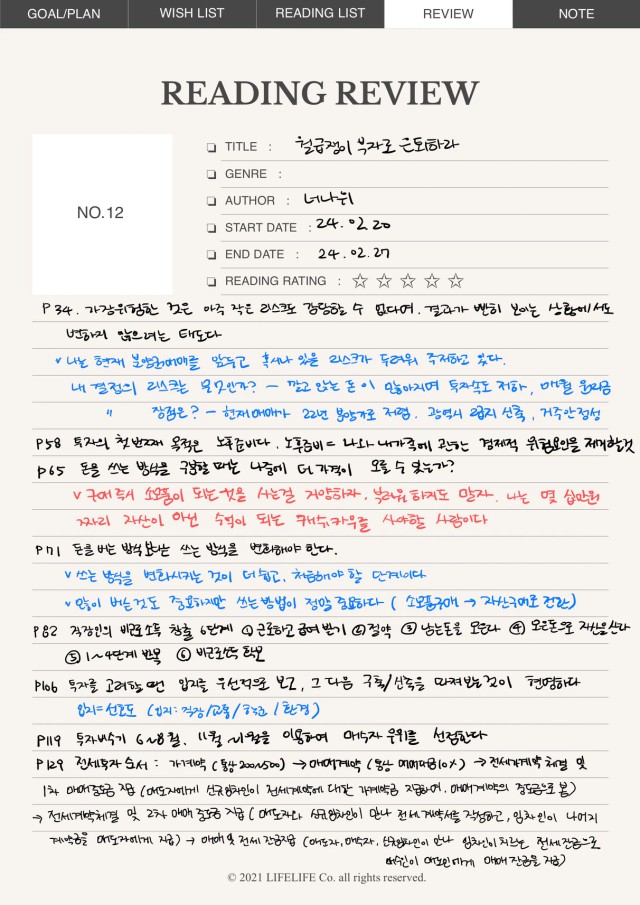 GOAL/PLAN
WISH LIST
READING LIST
REVIEW
NOTE
READING REVIEW
NO.12
TITLE : 월급쟁이 부자로 은퇴하라
GENRE :
AUTHOR : 너나위
START DATE : 24.02.20
END DATE : 24.02.27
READING RATING : ☆ ☆ ☆ ☆ ☆
P34. 가장 위험한 것은 아주 작은 리스크도 감당할 수 없다며, 결과가 뻔히 보이는 상황에서도
변하지 않으려는 태도다
v 나는 현재 분양권매매를 앞두고 혹시나 있을 리스크가 두려워 주저하고 있다.
내 결정의 리스크는 무엇인가? - 깔고 앉는 돈이 많아지며 투자속도 저하, 매월 원리금
" 장점은? - 현재 매매가 22년 분양가로 저렴, 광역시 급지 신축, 거주안정성
P58 투자의 첫번째 목적은 노후준비다. 노후준비 = 나와 내가족에 관한 경제적 위험요인을 제거할것
P65 돈을 쓰는 방식을 구분할 때는 나중에 더 가격이 오를 수 있는가?
v 구매즉시 소모품이 되는것을 사는걸 지양하자. 부러워 하지도 말자. 나는 몇 십만원
짜리 자산이 아닌 수억이 되는 캐시카우를 사야할 사람이다
P71 돈을 버는 방식보단 쓰는 방식을 변화해야 한다.
v 쓰는 방식을 변화시키는 것이 더 쉽고, 처음해야 할 단계이다
v 많이 버는것도 중요하지만 쓰는방법이 정말 중요하다 ( 소모품구매 → 자산구매로 전환)
P82 직장인의 비근로소득 창출 6단계 ① 근로하고 급여받기 ② 절약 ③ 남는돈을 모은다 ④ 모은돈으로 자산을 산다
⑤ 1~4단계 반복 ⑥ 비근로소득 확보
P106 투자를 고려할 땐 입지를 우선적으로 보고, 그 다음 구축/신축을 따져보는것이 현명하다
입지=선호도 (입지 : 직장/교통/학군/환경)
P119 투자비수기 6~8월, 11월~1월을 이용하여 매수자 우위를 선점한다
P129 전세투자 순서 : 가계약 (통상 200~500) → 매매계약 (통상 매매대금10%) → 전세가계약 체결 및
1차 매매중도금 지급 (매도자에게 신규임차인이 전세계약에 대한 가계약금 지급하여, 매매계약의 중도금으로 봄)
→ 전세계약체결 및 2차 매매 중도금 지급 ( 매도자와 신규임차인이 만나 전세계약서를 작성하고, 임차인이 나머지
계약금을 매도자에게 지급) → 매매 및 전세 잔금지급 (매도자, 매수자, 신규임차인이 만나 임차인이 치르는 전세잔금으로
매수인이 매도인에게 매매 잔금을 지급)
© 2021 LIFELIFE Co. all rights reserved.